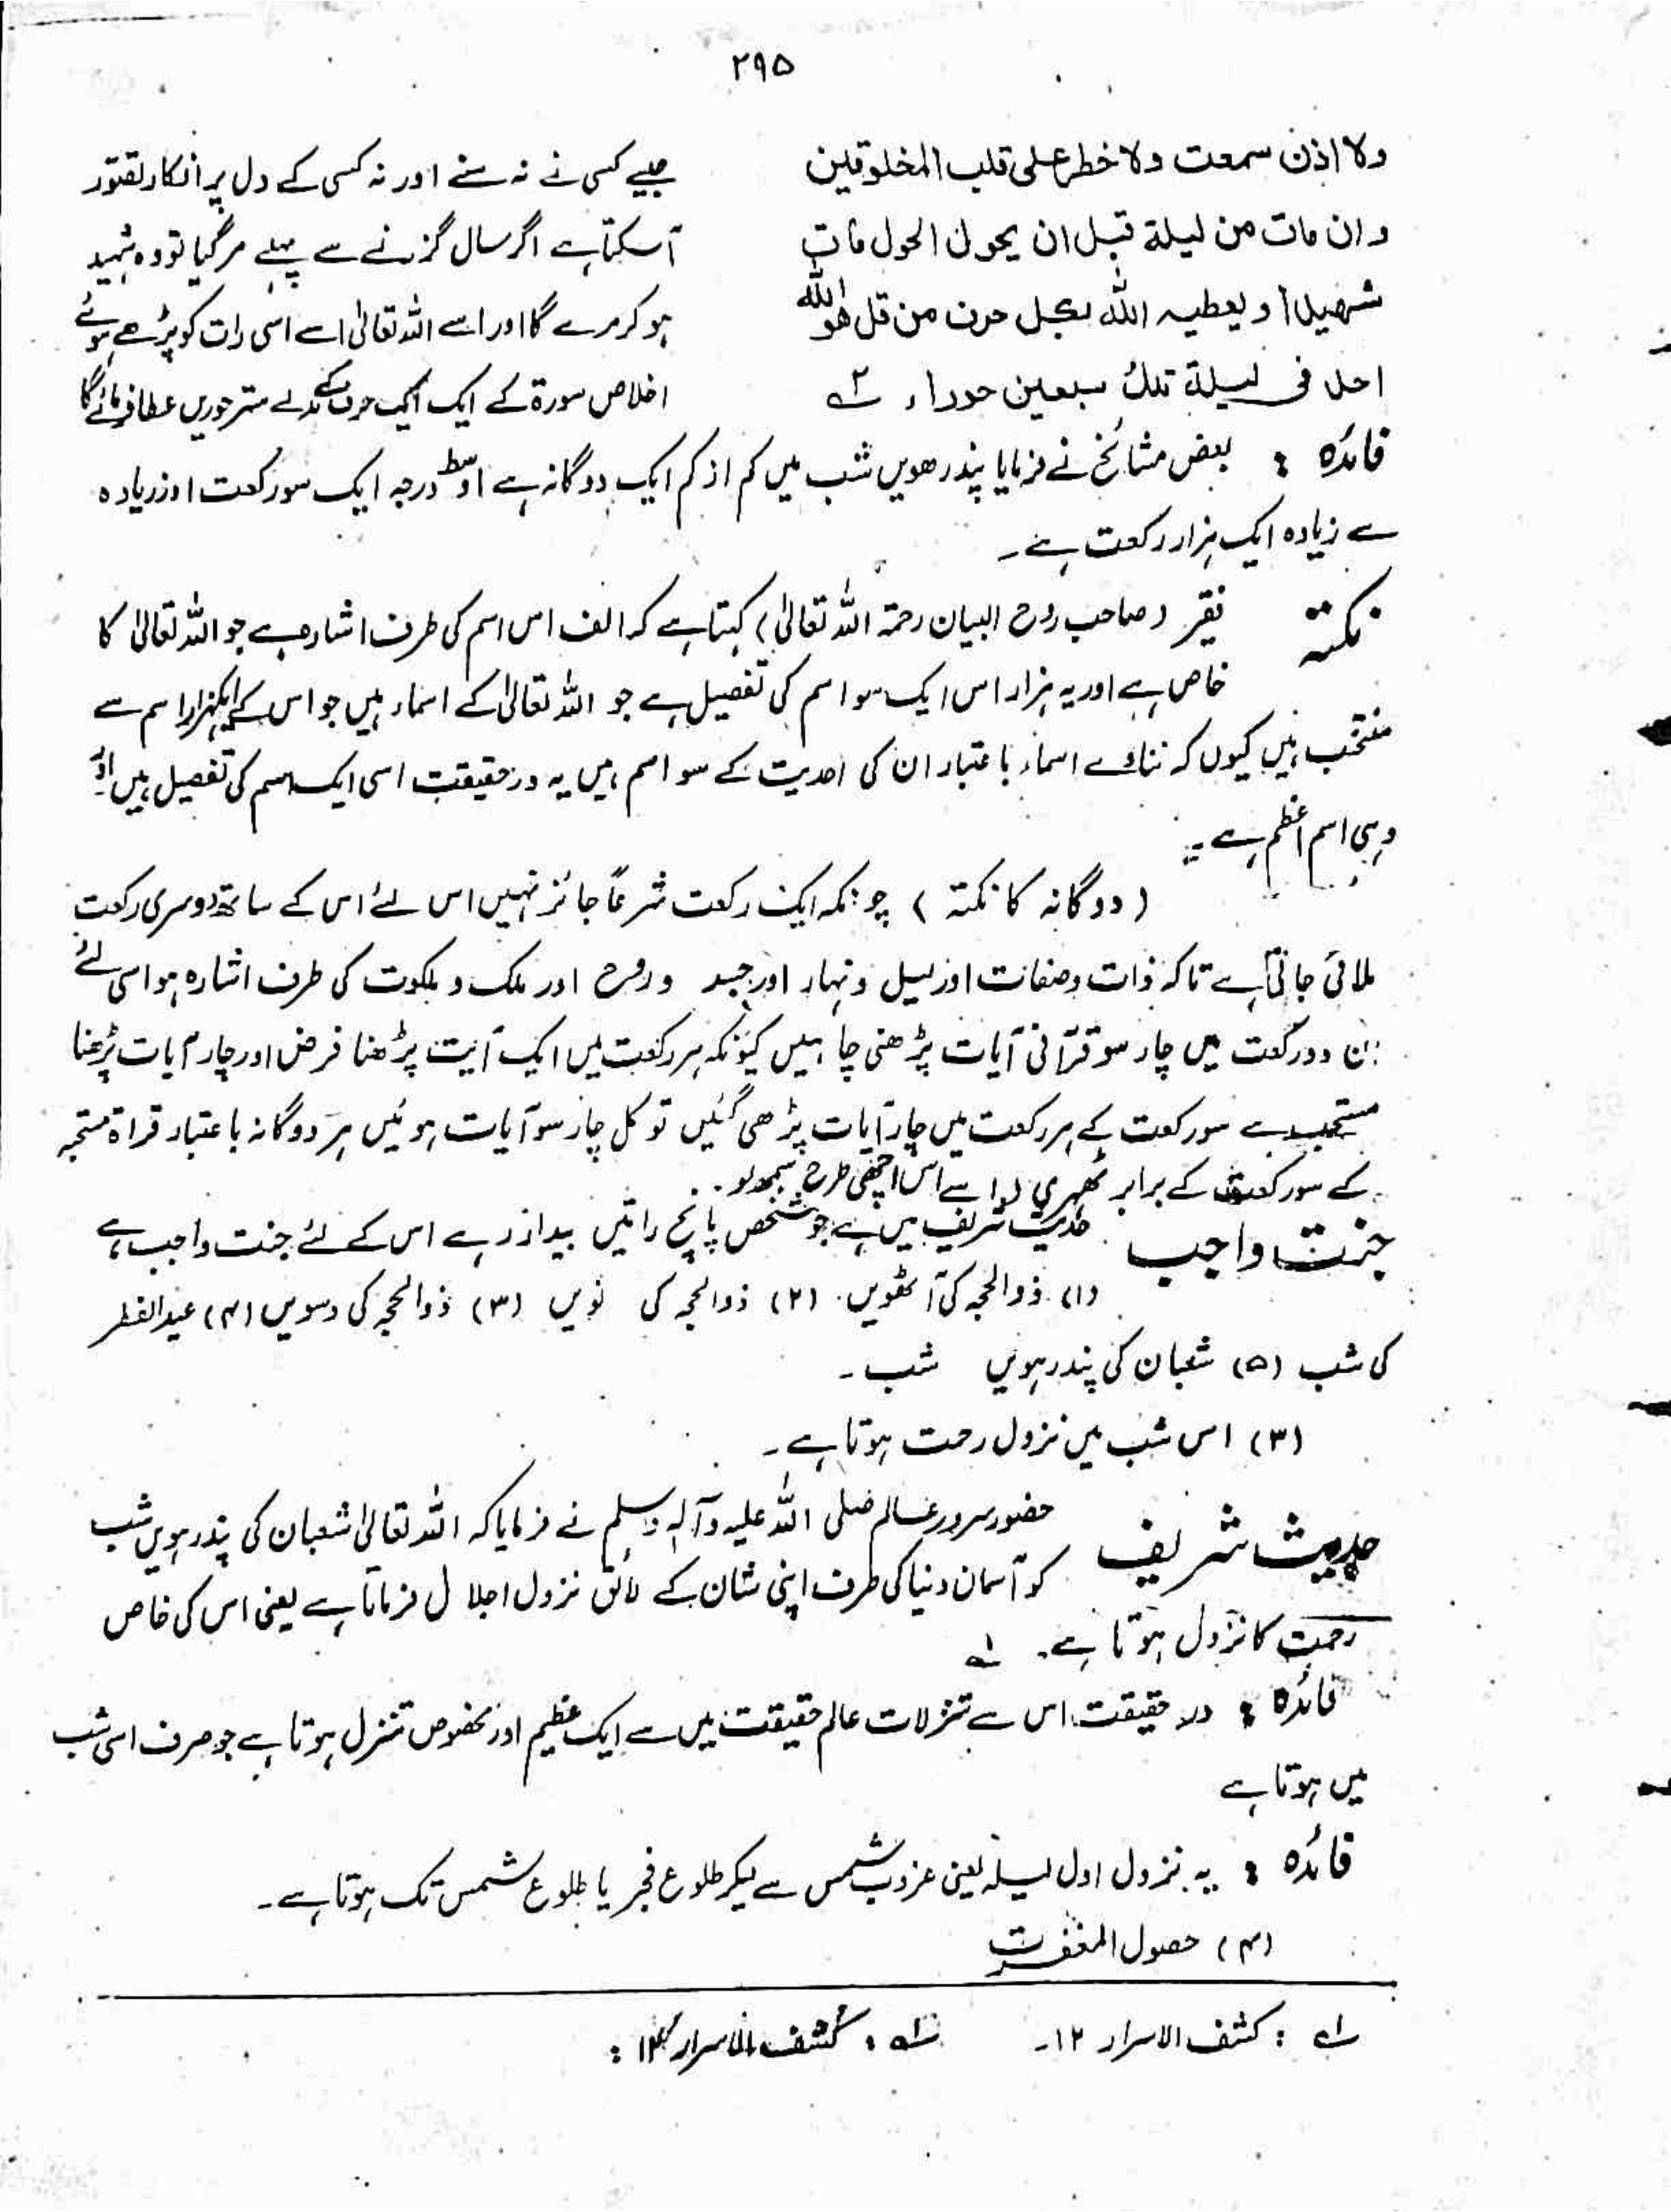 ۲۹۵
ولا اذن سمعت ولا خطر علی قلب المخلوقین
وان مات من لیلة قبل ان یحول الحول مات
شھیدا ویعطیہ اللہ بکل حرف من قل ھو اللہ
احد فی لیلة تلک سبعین حوراء ۲ے
جسے کسی نے نہ سنے اور نہ کسی کے دل پر انکا تصور
آسکتا ہے اگر سال گزرنے سے پہلے مرگیا تو وہ شہید
ہوکر مرے گا اور اسے اللہ تعالیٰ اسے اسی رات کو پڑھے ہوئے
اخلاص سورۃ کے ایک ایک حرف کے بدلے ستر حوریں عطا فرمائے گا
فائدہ : بعض مشائخ نے فرمایا پندرھویں شب میں کم از کم ایک دوگانہ ہے اوسط درجہ ایک سو رکعت اور زیادہ
سے زیادہ ایک ہزار رکعت ہے۔
نکتہ فقیر (صاحب روح البیان رحمۃ اللہ تعالیٰ) کہتا ہے کہ الف اس اسم کی طرف اشارہ ہے جو اللہ تعالیٰ کا
خاص ہے اور یہ ہزار اس ایک سو اسم کی تفصیل ہے جو اللہ تعالیٰ کے اسماء ہیں جو اس کے ایکہزار اسم سے
منتخب ہیں کیوں کہ ننانوے اسماء باعتبار ان کی احدیت کے سو اسم ہیں یہ درحقیقت اسی ایک اسم کی تفصیل ہیں اور
وہی اسم اعظم ہے =
(دوگانہ کا نکتہ) چونکہ ایک رکعت شرعاً جائز نہیں اس لئے اس کے ساتھ دوسری رکعت
ملائی جاتی ہے تاکہ ذات وصفات اور لیل ونہار اور جسد وروح اور ملک وملکوت کی طرف اشارہ ہو اسی لئے
ان دو رکعت میں چار سو قرآنی آیات پڑھنی چاہیں کیونکہ ہر رکعت میں ایک آیت پڑھنا فرض اور چار آیات پڑھنا
مستحب ہے سو رکعت کے ہر رکعت میں چار آیات پڑھی گئیں تو کل چار سو آیات ہوئیں ہر دوگانہ باعتبار قراۃ مستحبہ
کے سو رکعت کے برابر ٹھہری اسے اس اچھی طرح سمجھ لو۔
جنت واجب حدیث شریف میں ہے جو شخص پانچ راتیں بیدار رہے اس کے لئے جنت واجب ہے
(۱) ذوالحجہ کی آٹھویں (۲) ذوالحجہ کی نویں (۳) ذوالحجہ کی دسویں (۴) عیدالفطر
کی شب (۵) شعبان کی پندرہویں شب ۔
(۳) اس شب میں نزول رحمت ہوتا ہے ۔
حدیث شریف حضور سرور عالم صلی اللہ علیہ وآلہ وسلم نے فرمایا کہ اللہ تعالیٰ شعبان کی پندرہویں شب
کو آسمان دنیا کی طرف اپنی شان کے لائق نزول اجلال فرماتا ہے یعنی اس کی خاص
رحمت کا نزول ہوتا ہے۔ ۱ے
فائدہ : در حقیقت اس سے تنزلات عالم حقیقت میں سے ایک عظیم اور مخصوص تنزل ہوتا ہے جو صرف اسی شب
میں ہوتا ہے
فائدہ : یہ نزول اول لیلہ یعنی غروب شمس سے لیکر طلوع فجر یا طلوع شمس تک ہوتا ہے ۔
(۴) حصول المغفرت
۱ے : کشف الاسرار ۱۲۔ ۱ے : کشف الاسرار ۱۲ :